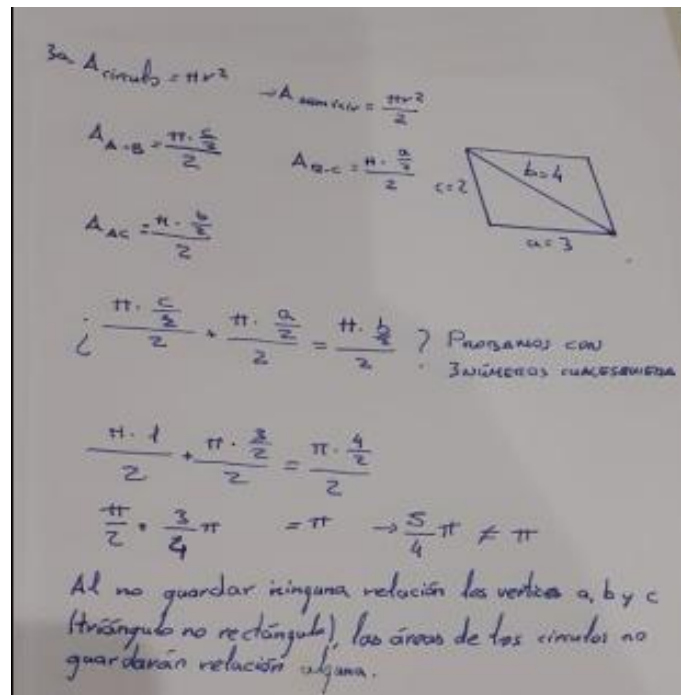 3a A circulo = πr² → A semicir = πr²/2
A A-B = (π · c/2)/2 A B-C = (π · a/2)/2
c=2 b=4 a=3
A AC = (π · b/2)/2
¿ (π · c/2)/2 + (π · a/2)/2 = (π · b/2)/2 ? PROBAMOS CON
3 NÚMEROS CUALESQUIERA
(π · 1)/2 + (π · 3/2)/2 = (π · 4/2)/2
π/2 + 3/4 π = π → 5/4 π ≠ π
Al no guardar ninguna relación los vertices a, b y c
(triángulo no rectángulo), las áreas de los circulos no
guardarán relación alguna.